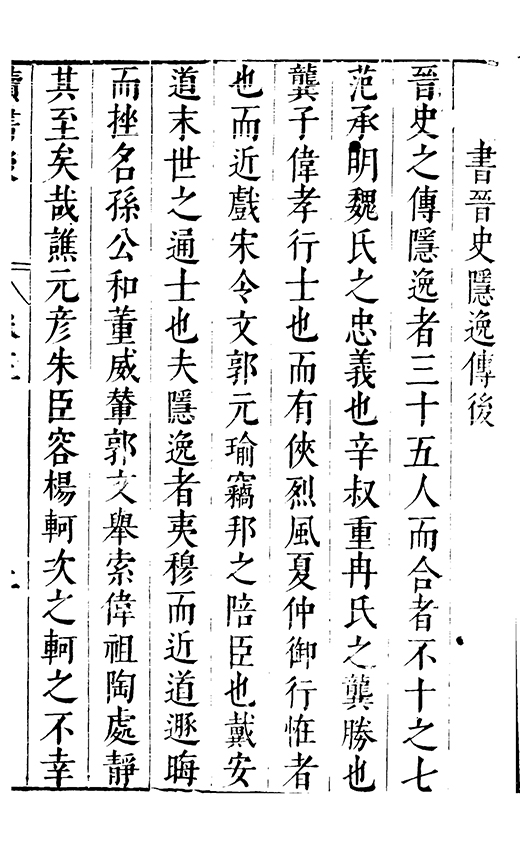 書晉史隱逸傳後
晉史之傳隱逸者三十五人而合者不十之七
范承明魏氏之忠義也辛叔重冉氏之龔勝也
龔子偉孝行士也而有俠烈風夏仲御行恠者
也而近戲宋令文郭元瑜竊邦之陪臣也戴安
道末世之通士也夫隱逸者夷穆而近道遯晦
而挫名孫公和董威輦郭文舉索偉祖陶處靜
其至矣哉譙元彥朱臣容楊軻次之軻之不幸
讀書後